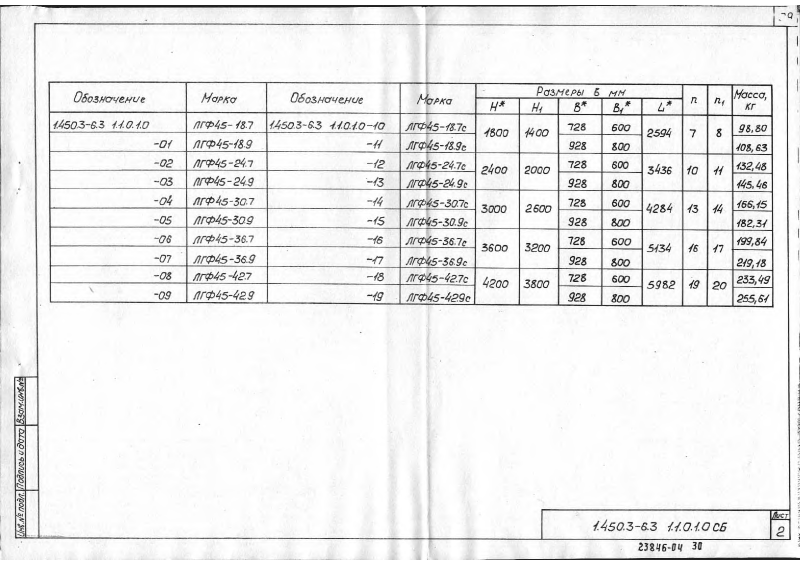 Обозначение Марка Обозначение Марка Размеры в мм n n₁ Масса, кг
H* H₁ B* B₁* L*
1.450.3-6.3 1.1.0.1.0 ЛГФ45-18.7 1.450.3-6.3 1.1.0.1.0-10 ЛГФ45-18.7с 1800 1400 728 600 2594 7 8 98,80
-01 ЛГФ45-18.9 -11 ЛГФ45-18.9с 928 800 108,63
-02 ЛГФ45-24.7 -12 ЛГФ45-24.7с 2400 2000 728 600 3436 10 11 132,48
-03 ЛГФ45-24.9 -13 ЛГФ45-24.9с 928 800 145,46
-04 ЛГФ45-30.7 -14 ЛГФ45-30.7с 3000 2600 728 600 4284 13 14 166,15
-05 ЛГФ45-30.9 -15 ЛГФ45-30.9с 928 800 182,31
-06 ЛГФ45-36.7 -16 ЛГФ45-36.7с 3600 3200 728 600 5134 16 17 199,84
-07 ЛГФ45-36.9 -17 ЛГФ45-36.9с 928 800 219,18
-08 ЛГФ45-42.7 -18 ЛГФ45-42.7с 4200 3800 728 600 5982 19 20 233,49
-09 ЛГФ45-42.9 -19 ЛГФ45-42.9с 928 800 255,61
Инв.№ подл. Подпись и дата Взам.инв.№
1.450.3-6.3 1.1.0.1.0 СБ
Лист
2
23846-04 30